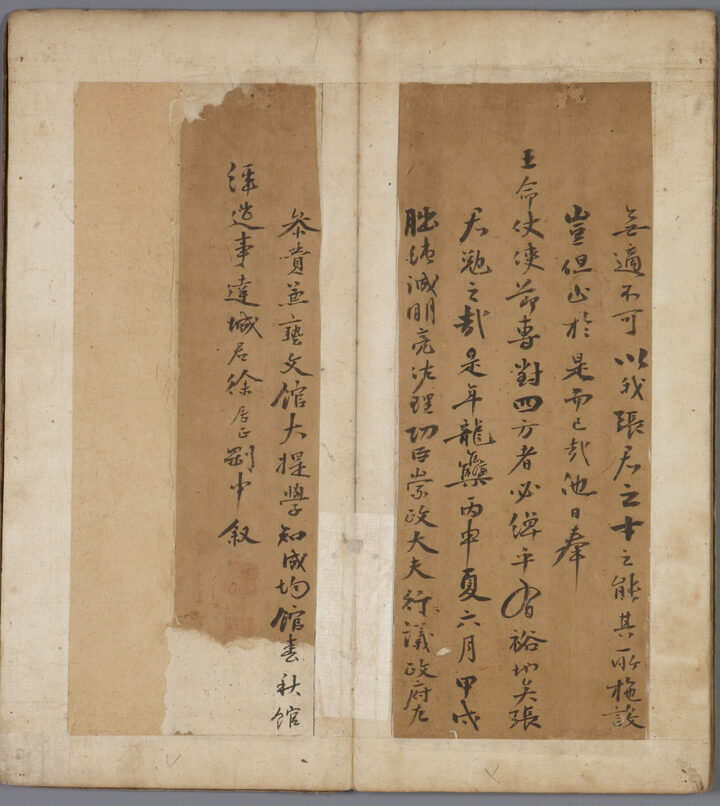 無適不可以我張君之才之能其所施設
豈但止於是而已哉他日奉
王命仗使節專對四方者必綽乎有裕如矣張
君勉之哉是年龍集丙申夏六月甲戌
純誠明亮佐理功臣崇政大夫行議政府左
參賛兼藝文館大提學知成均館春秋館
經筵事達城君徐居正剛中叙